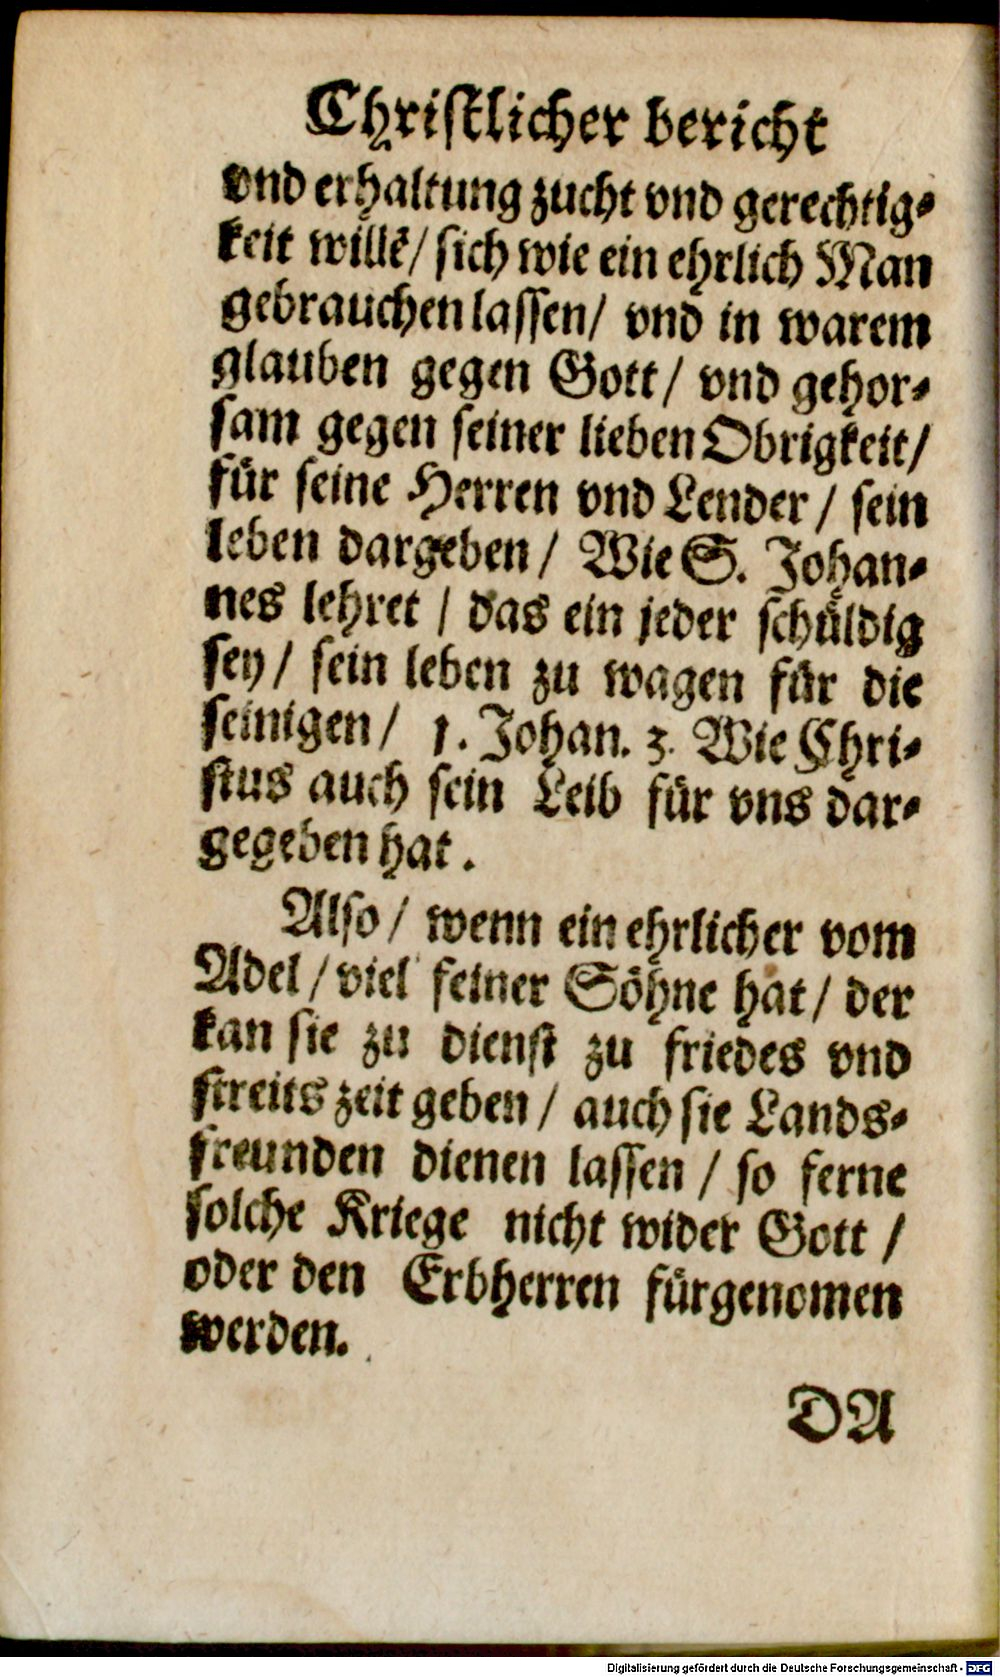 Christlicher bericht
vnd erhaltung zucht vnd gerechtig⸗
keit willē/ sich wie ein ehrlich Man
gebrauchen lassen/ vnd in warem
glauben gegen Gott/ vnd gehor⸗
sam gegen seiner lieben Obrigkeit/
für seine Herren vnd Lender/ sein
leben dargeben/ Wie S. Johan⸗
nes lehret/ das ein jeder schüldig
sey/ sein leben zu wagen für die
seinigen/ 1. Johan. 3. Wie Chri⸗
stus auch sein Leib für vns dar⸗
gegeben hat.
Also/ wenn ein ehrlicher vom
Adel/ viel feiner Söhne hat/ der
kan sie zu dienst zu friedes vnd
streits zeit geben/ auch sie Lands⸗
freunden dienen lassen/ so ferne
solche Kriege nicht wider Gott/
oder den Erbherren fürgenomen
werden.
DA
Digitalisierung gefördert durch die Deutsche Forschungsgemeinschaft - DFG